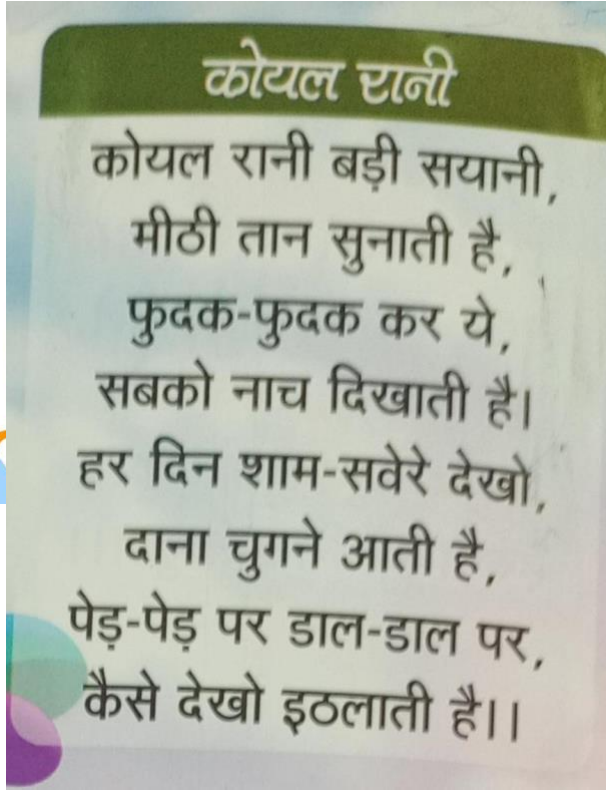 कोयल रानी
कोयल रानी बड़ी सयानी,
मीठी तान सुनाती है,
फुदक-फुदक कर ये,
सबको नाच दिखाती है।
हर दिन शाम-सवेरे देखो,
दाना चुगने आती है,
पेड़-पेड़ पर डाल-डाल पर,
कैसे देखो इठलाती है।।